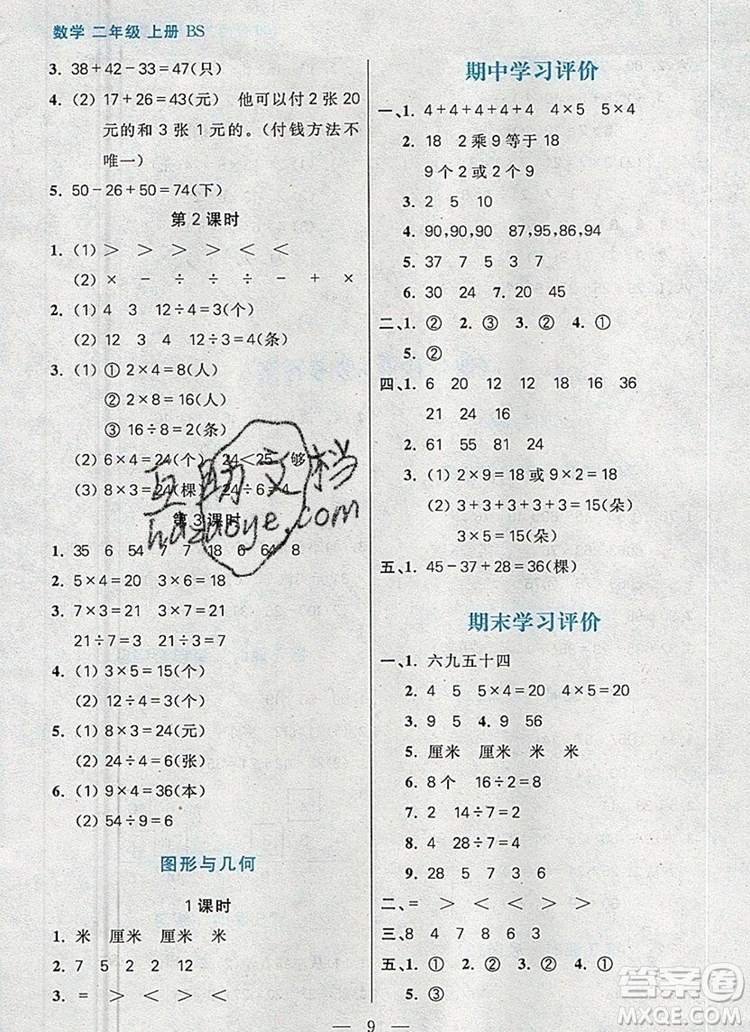 数学 二年级 上册 BS
3. 38+42-33=47(只)
4. (2) 17+26=43(元) 他可以付2张20
元的和3张1元的。(付钱方法不
唯一)
5. 50-26+50=74(下)
第2课时
1. (1) > > > > < <
(2) × - ÷ - ÷ - + ×
2. (1) 4 3 12÷4=3(个)
(2) 12 3 4 12÷3=4(条)
3. (1) ① 2×4=8(人)
② 2×8=16(人)
③ 16÷8=2(条)
(2) 6×4=24(个) 24<25 够
(3) 8×3=24(棵) 24÷6=4
第3课时
1. 35 6 54 7 7 18 6 64 8
2. 5×4=20 3×6=18
3. 3×7=21 3×7=21
21÷7=3 21÷3=7
4. (1) 3×5=15(个)
(2) 12÷4=3(个)
5. (1) 8×3=24(元)
(2) 24÷4=6(张)
6. (1) 9×4=36(本)
(2) 54÷9=6(个)
图形与几何
1课时
1. 米 厘米 厘米 米
2. 7 5 2 2 12
3. = > > < > <
期中学习评价
一、1. 4+4+4+4+4 4×5 5×4
2. 18 2乘9等于18
9个2或2个9
3. 2 5 10
4. 90,90,90 87,95,86,94
5. 37 7 5 3 7
6. 30 24 7. 20 45
二、1. ② 2. ③ 3. ② 4. ①
5. ②
四、1. 6 20 12 12 18 16 36
21 24 16
2. 61 55 81 24
3. (1) 2×9=18或9×2=18
(2) 3+3+3+3+3=15(朵)
3×5=15(朵)
五、1. 45-37+28=36(棵)
期末学习评价
一、1. 六九五十四
2. 4 5 5×4=20 4×5=20
3. 9 5 4. 9 56
5. 厘米 厘米 米 米
6. 8个 16÷2=8
7. 2 14÷7=2
8. 4 28÷7=4
9. 28 5 7 3 6
二、= > < < > >
三、8 4 7 5 4 42
五、1. ① 2. ② 3. ② 4. ①
5. ③
9
互助文档
huzuoye.com
答案圈
MXQE.COM